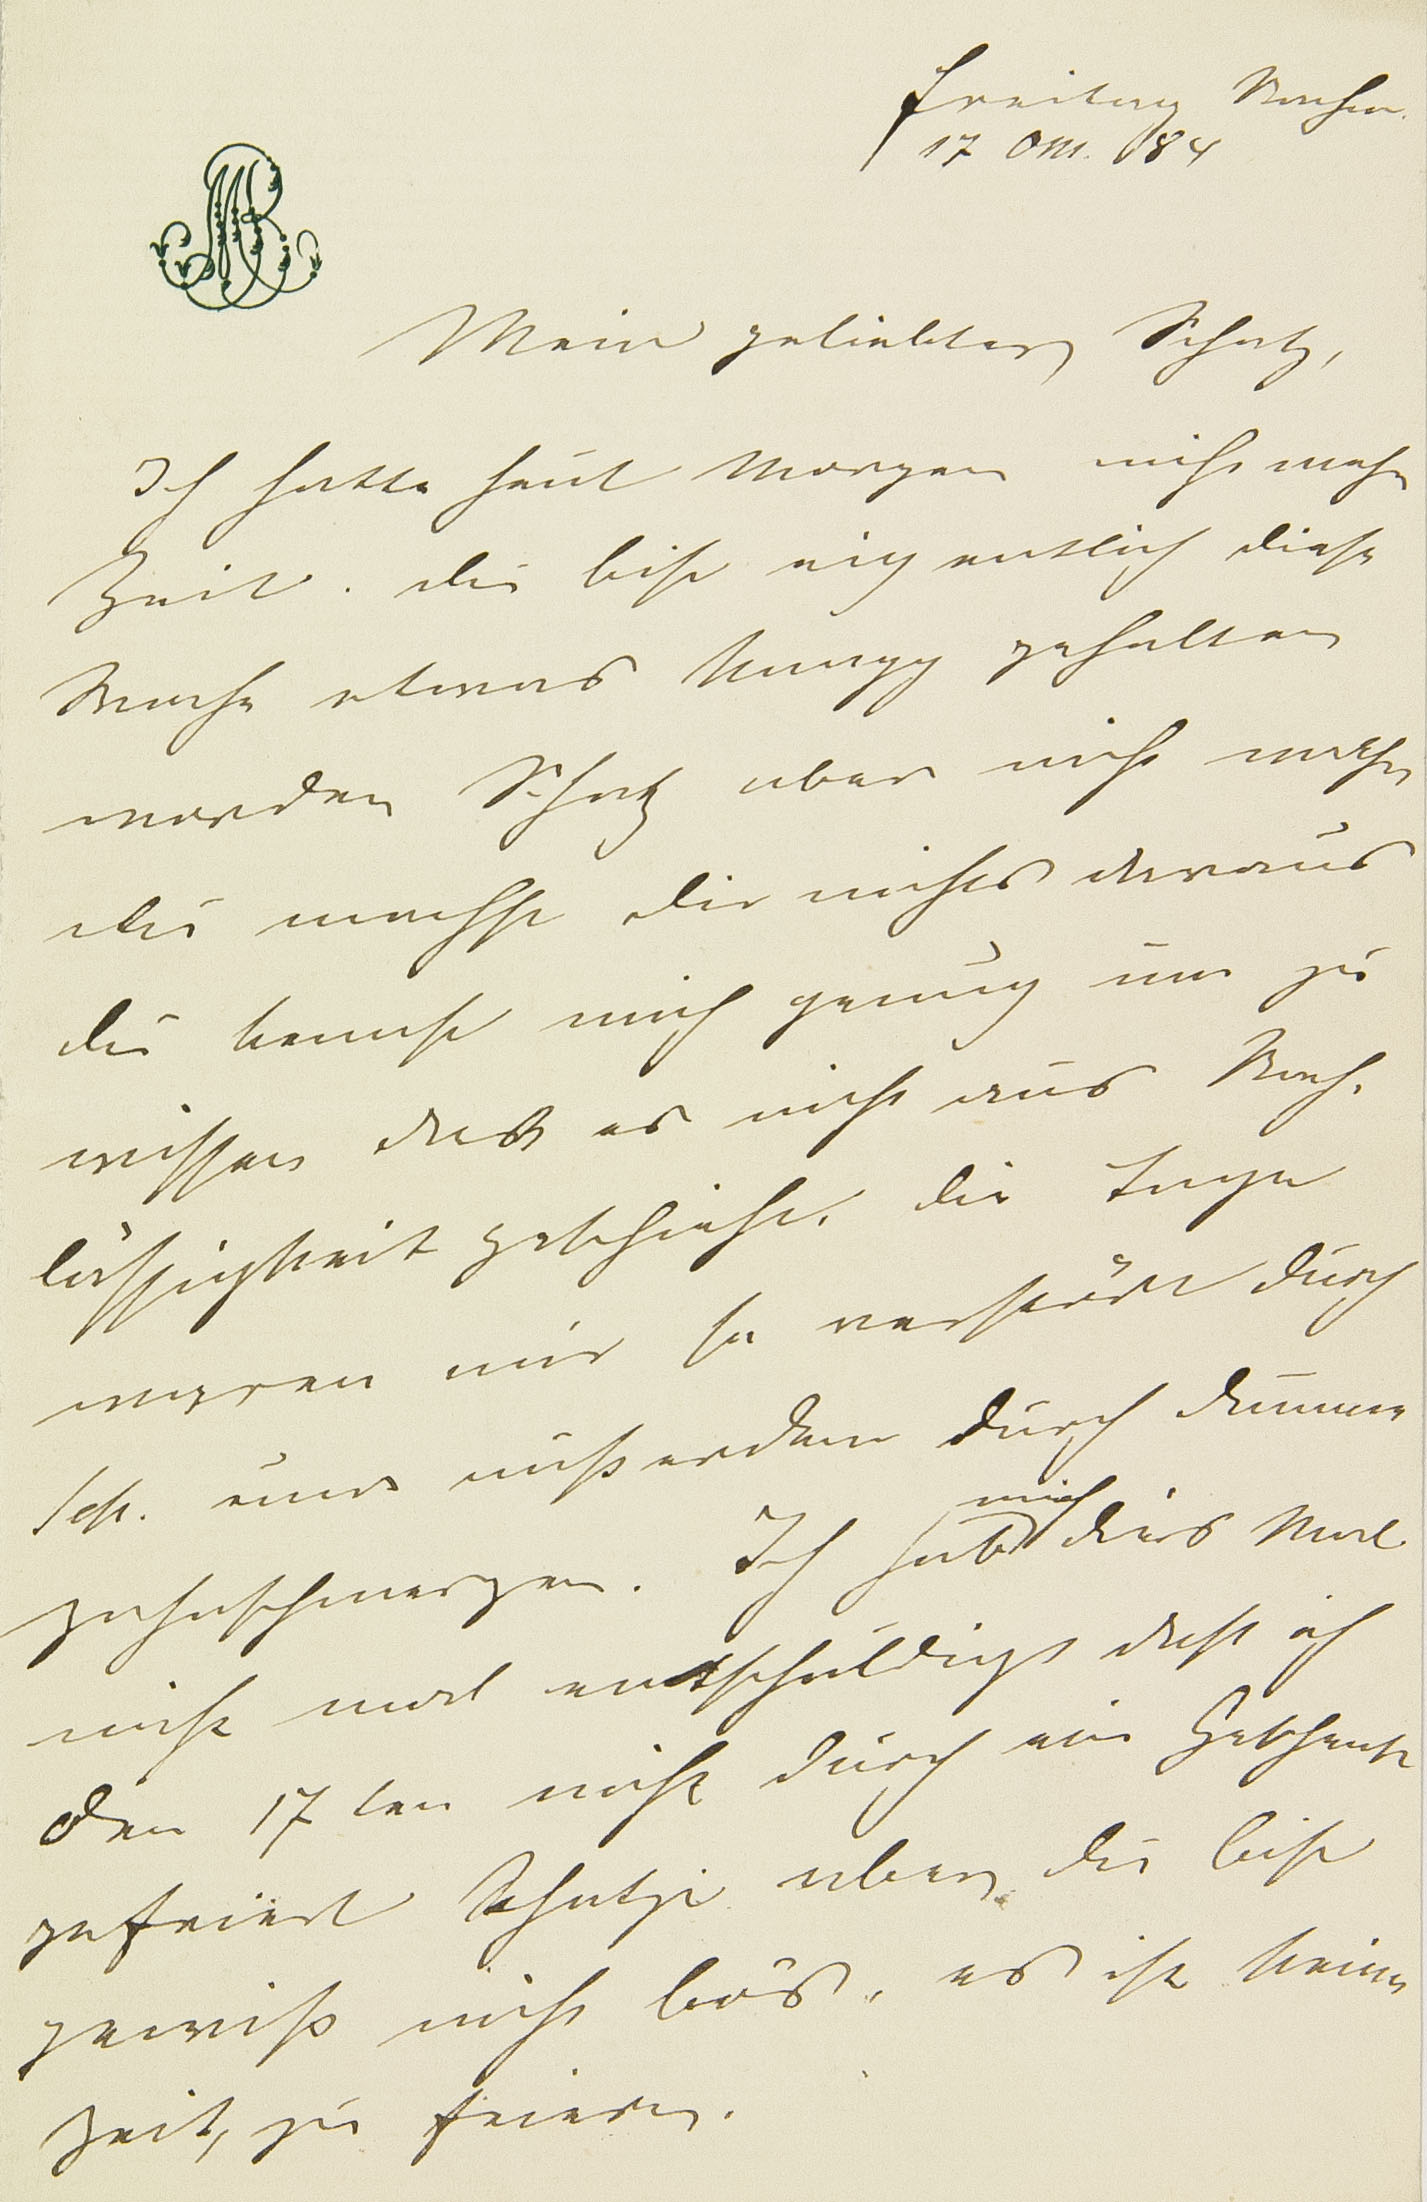 Freitag Nachm.
17 Okt. 84
MB
Mein geliebter Schatz,
Ich hatte heut Morgen nicht mehr
Zeit. du bist eigentlich diese
Woche etwas knapp gehalten
worden Schatz aber nicht wahr
du machst dir nichts daraus
du kennst mich genug um zu
wissen daß es nicht aus Nach-
lässigkeit geschieht. die Tage
waren mir so verstört durch
Sch. und außerdem durch dumme
Zahnschmerzen. Ich hab mich dies Mal
nicht mal entschuldigt daß ich
den 17ten nicht durch ein Geschenk
gefeiert Schatzi aber du bist
gewiß nicht bös, es ist keine
Zeit, zu feiern.